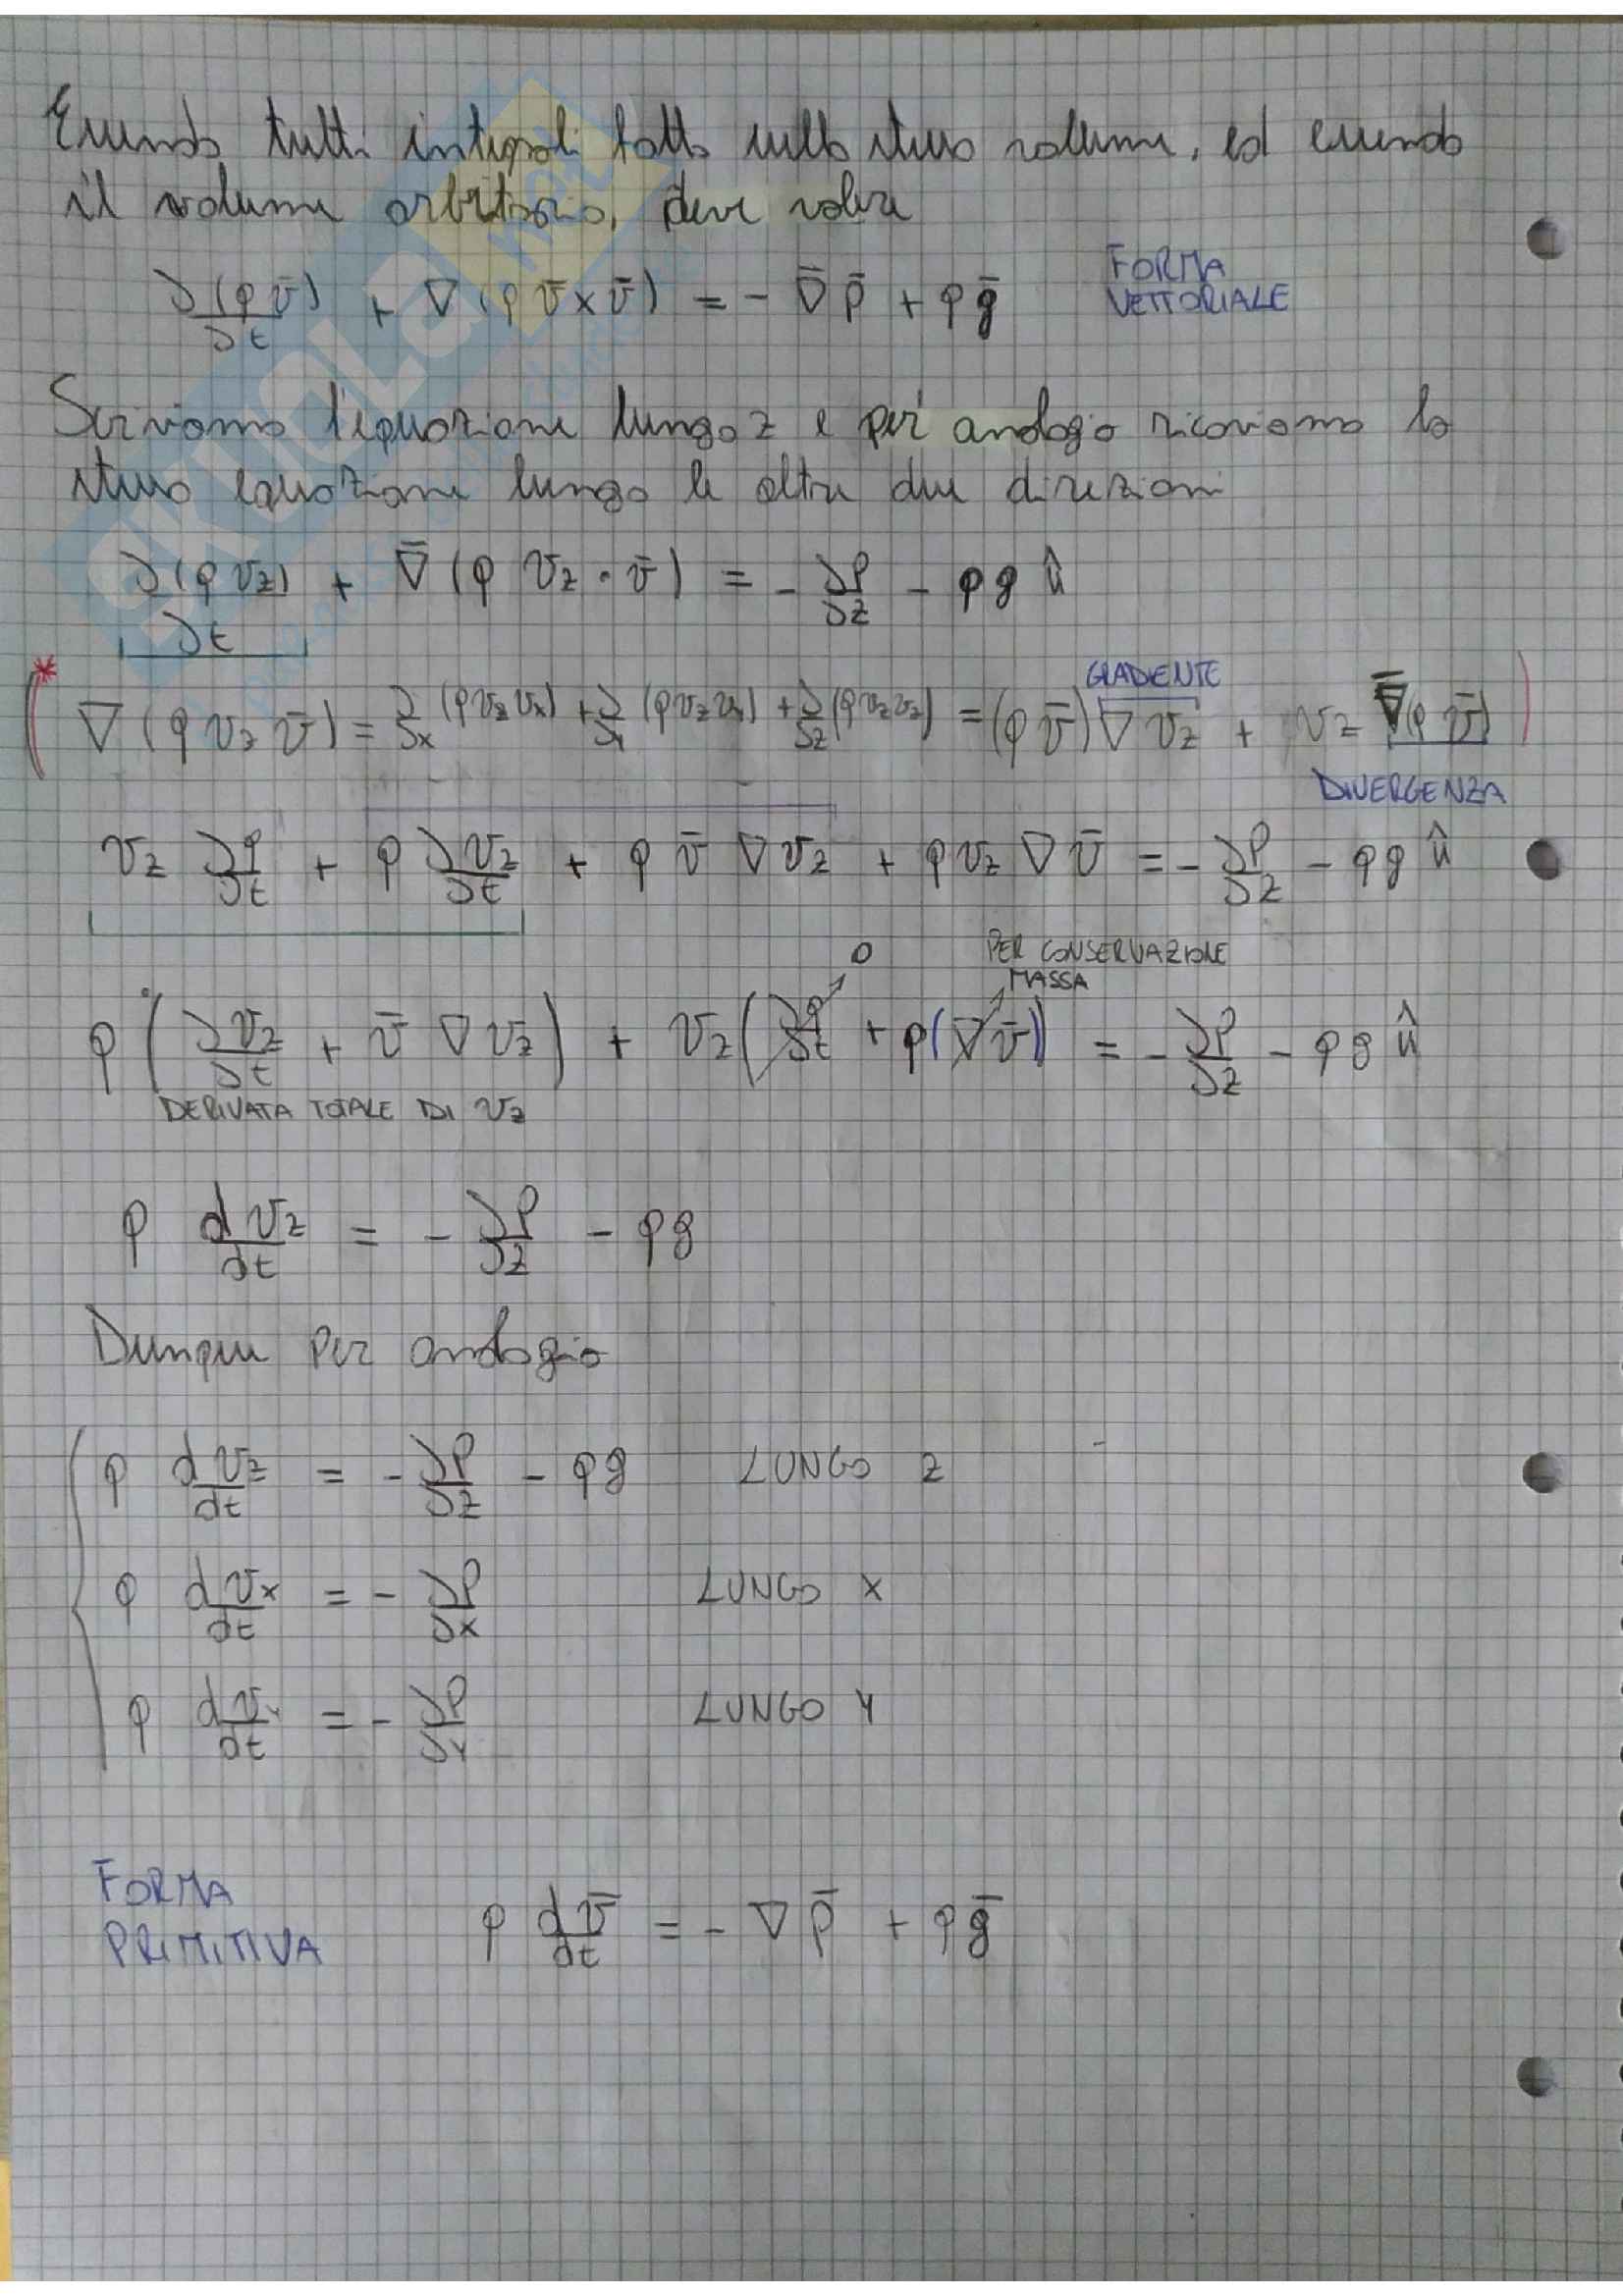 Essendo tutti integrali fatti sullo stesso volume, ed essendo
il volume arbitrario, deve valere
∂(ρ v̄)/∂t + ∇(ρ v̄ × v̄) = - ∇̄ p̄ + ρḡ FORMA VETTORIALE
Scriviamo l'equazione lungo z e per analogia ricaviamo la
stessa equazione lungo le altre due direzioni
∂(ρ vz)/∂t + ∇̄ (ρ vz · v̄) = - ∂P/∂z - ρg û
GRADIENTE
* ( ∇(ρ vz v̄) = ∂/∂x (ρvz vx) + ∂/∂y (ρvz vy) + ∂/∂z (ρvz vz) = (ρ v̄) ∇ vz + vz ∇̄(ρ v̄) )
DIVERGENZA
vz ∂ρ/∂t + ρ ∂vz/∂t + ρ v̄ ∇ vz + ρ vz ∇ v̄ = - ∂P/∂z - ρg û
0 PER CONSERVAZIONE
MASSA
ρ ( ∂vz/∂t + v̄ ∇ vz ) + vz ( ∂ρ/∂t + ρ(∇ v̄) ) = - ∂P/∂z - ρg û
DERIVATA TOTALE DI vz
ρ dvz/dt = - ∂P/∂z - ρg
Dunque per analogia
ρ dvz/dt = - ∂P/∂z - ρg LUNGO Z
ρ dvx/dt = - ∂P/∂x LUNGO X
ρ dvy/dt = - ∂P/∂y LUNGO Y
FORMA
PRIMITIVA ρ dv̄/dt = - ∇ p̄ + ρḡ
SKUOLA.net